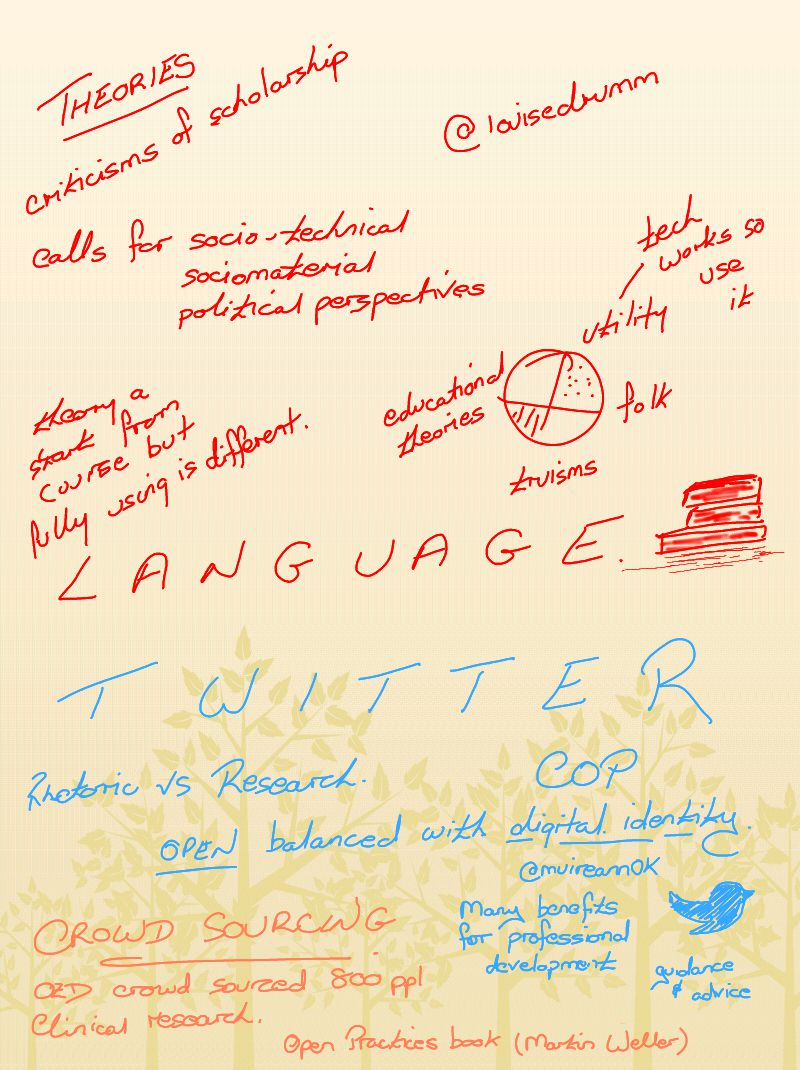 THEORIES
criticisms of scholarship
@louisedrumm
calls for socio-technical
sociomaterial
political perspectives
tech
works so
use
it
utility
educational
theories
folk
truisms
theory a
start from
course but
fully using is different.
LANGUAGE.
TWITTER
Rhetoric vs Research.
COP
OPEN balanced with digital identity.
@muireannOK
Many benefits
for professional
development
guidance
& advice
CROWD SOURCING
crowd sourced 800 ppl
Clinical research.
Open Practices book (Martin Weller)